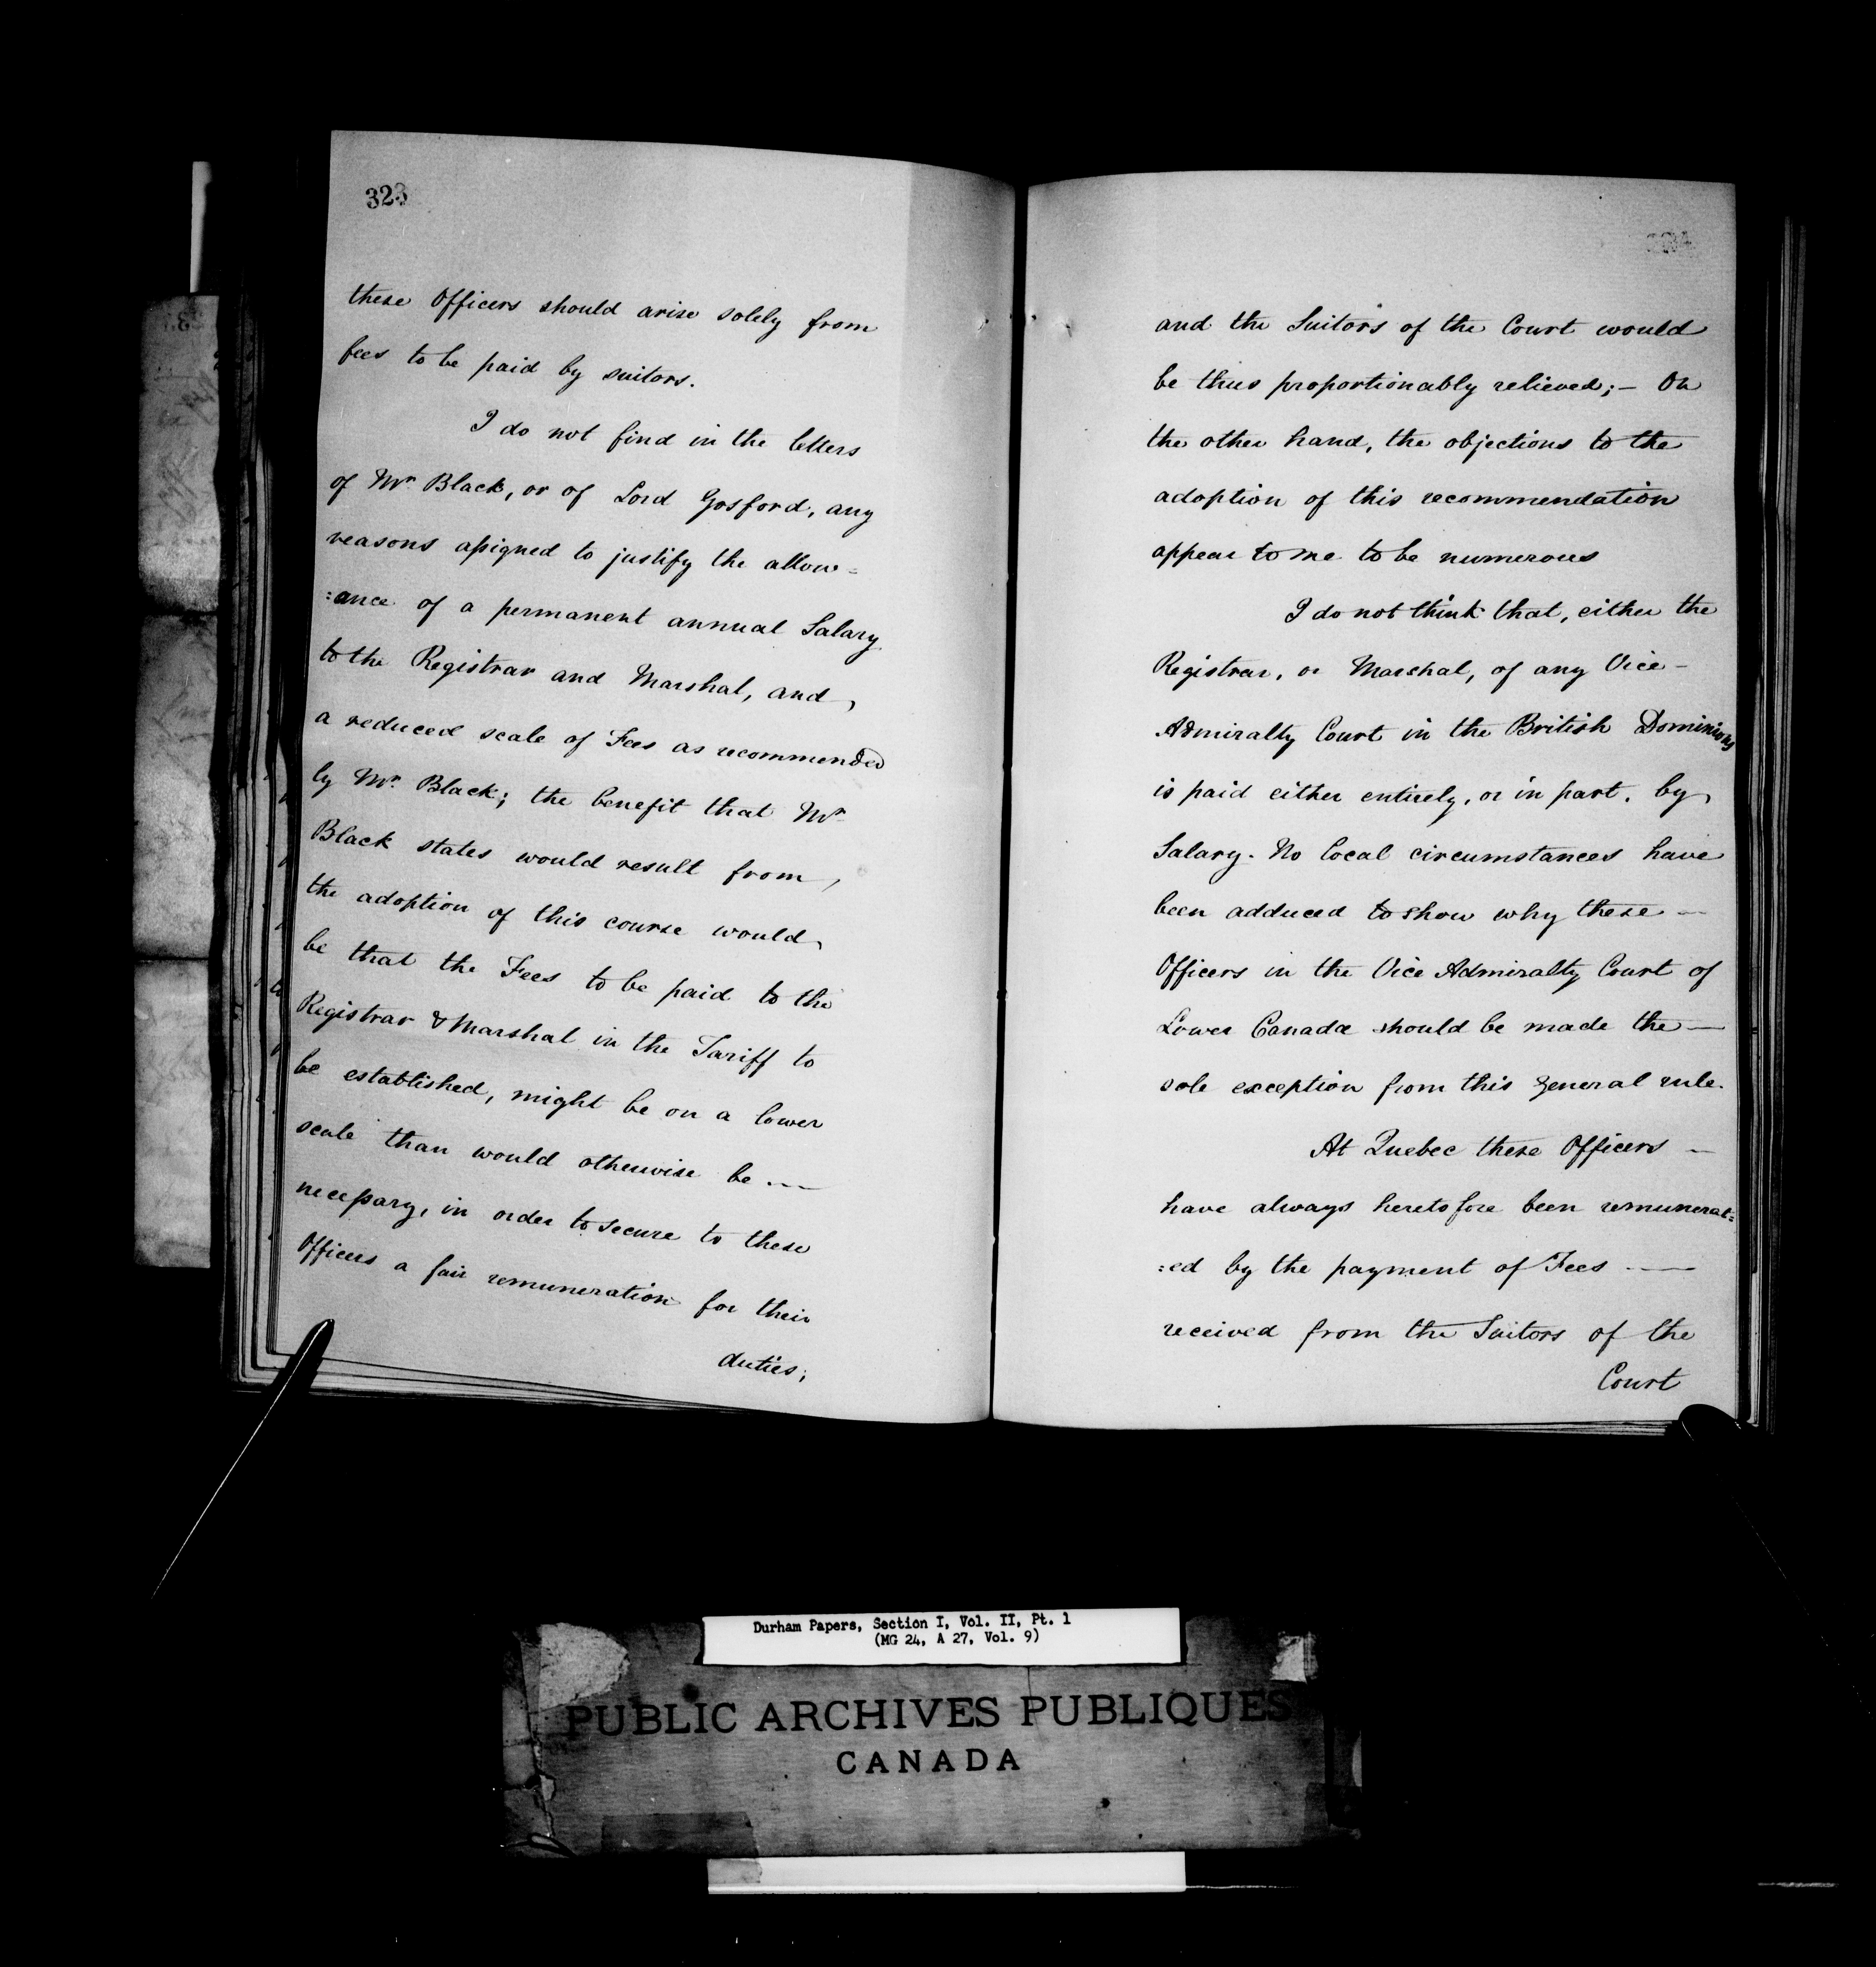 323
these Officers should arise solely from
fees to be paid by suitors.
I do not find in the letters
of Mr. Black, or of Lord Gosford, any
reasons assigned to justify the allow=
:ance of a permanent annual Salary
to the Registrar and Marshal, and
a reduced scale of Fees as recommended
by Mr. Black; the benefit that Mr
Black states would result from
the adoption of this course would
be that the Fees to be paid to the
Registrar & Marshal in the Tariff to
be established, might be on a lower
scale than would otherwise be —
necessary, in order to secure to these
Officers a fair remuneration for their
duties;
and the Suitors of the Court would
be thus proportionably relieved; — On
the other hand, the objections to the
adoption of this recommendation
appear to me to be numerous
I do not think that, either the
Registrar, or Marshal, of any Vice —
Admiralty Court in the British Dominions
is paid either entirely, or in part, by
Salary. No local circumstances have
been adduced to show why these —
Officers in the Vice Admiralty Court of
Lower Canada should be made the —
sole exception from this general rule.
At Quebec these Officers —
have always heretofore been remunerat=
:ed by the payment of Fees —
received from the Suitors of the
Court
Durham Papers, Section I, Vol. II, Pt. 1
(MG 24, A 27, Vol. 9)
PUBLIC ARCHIVES PUBLIQUES
CANADA